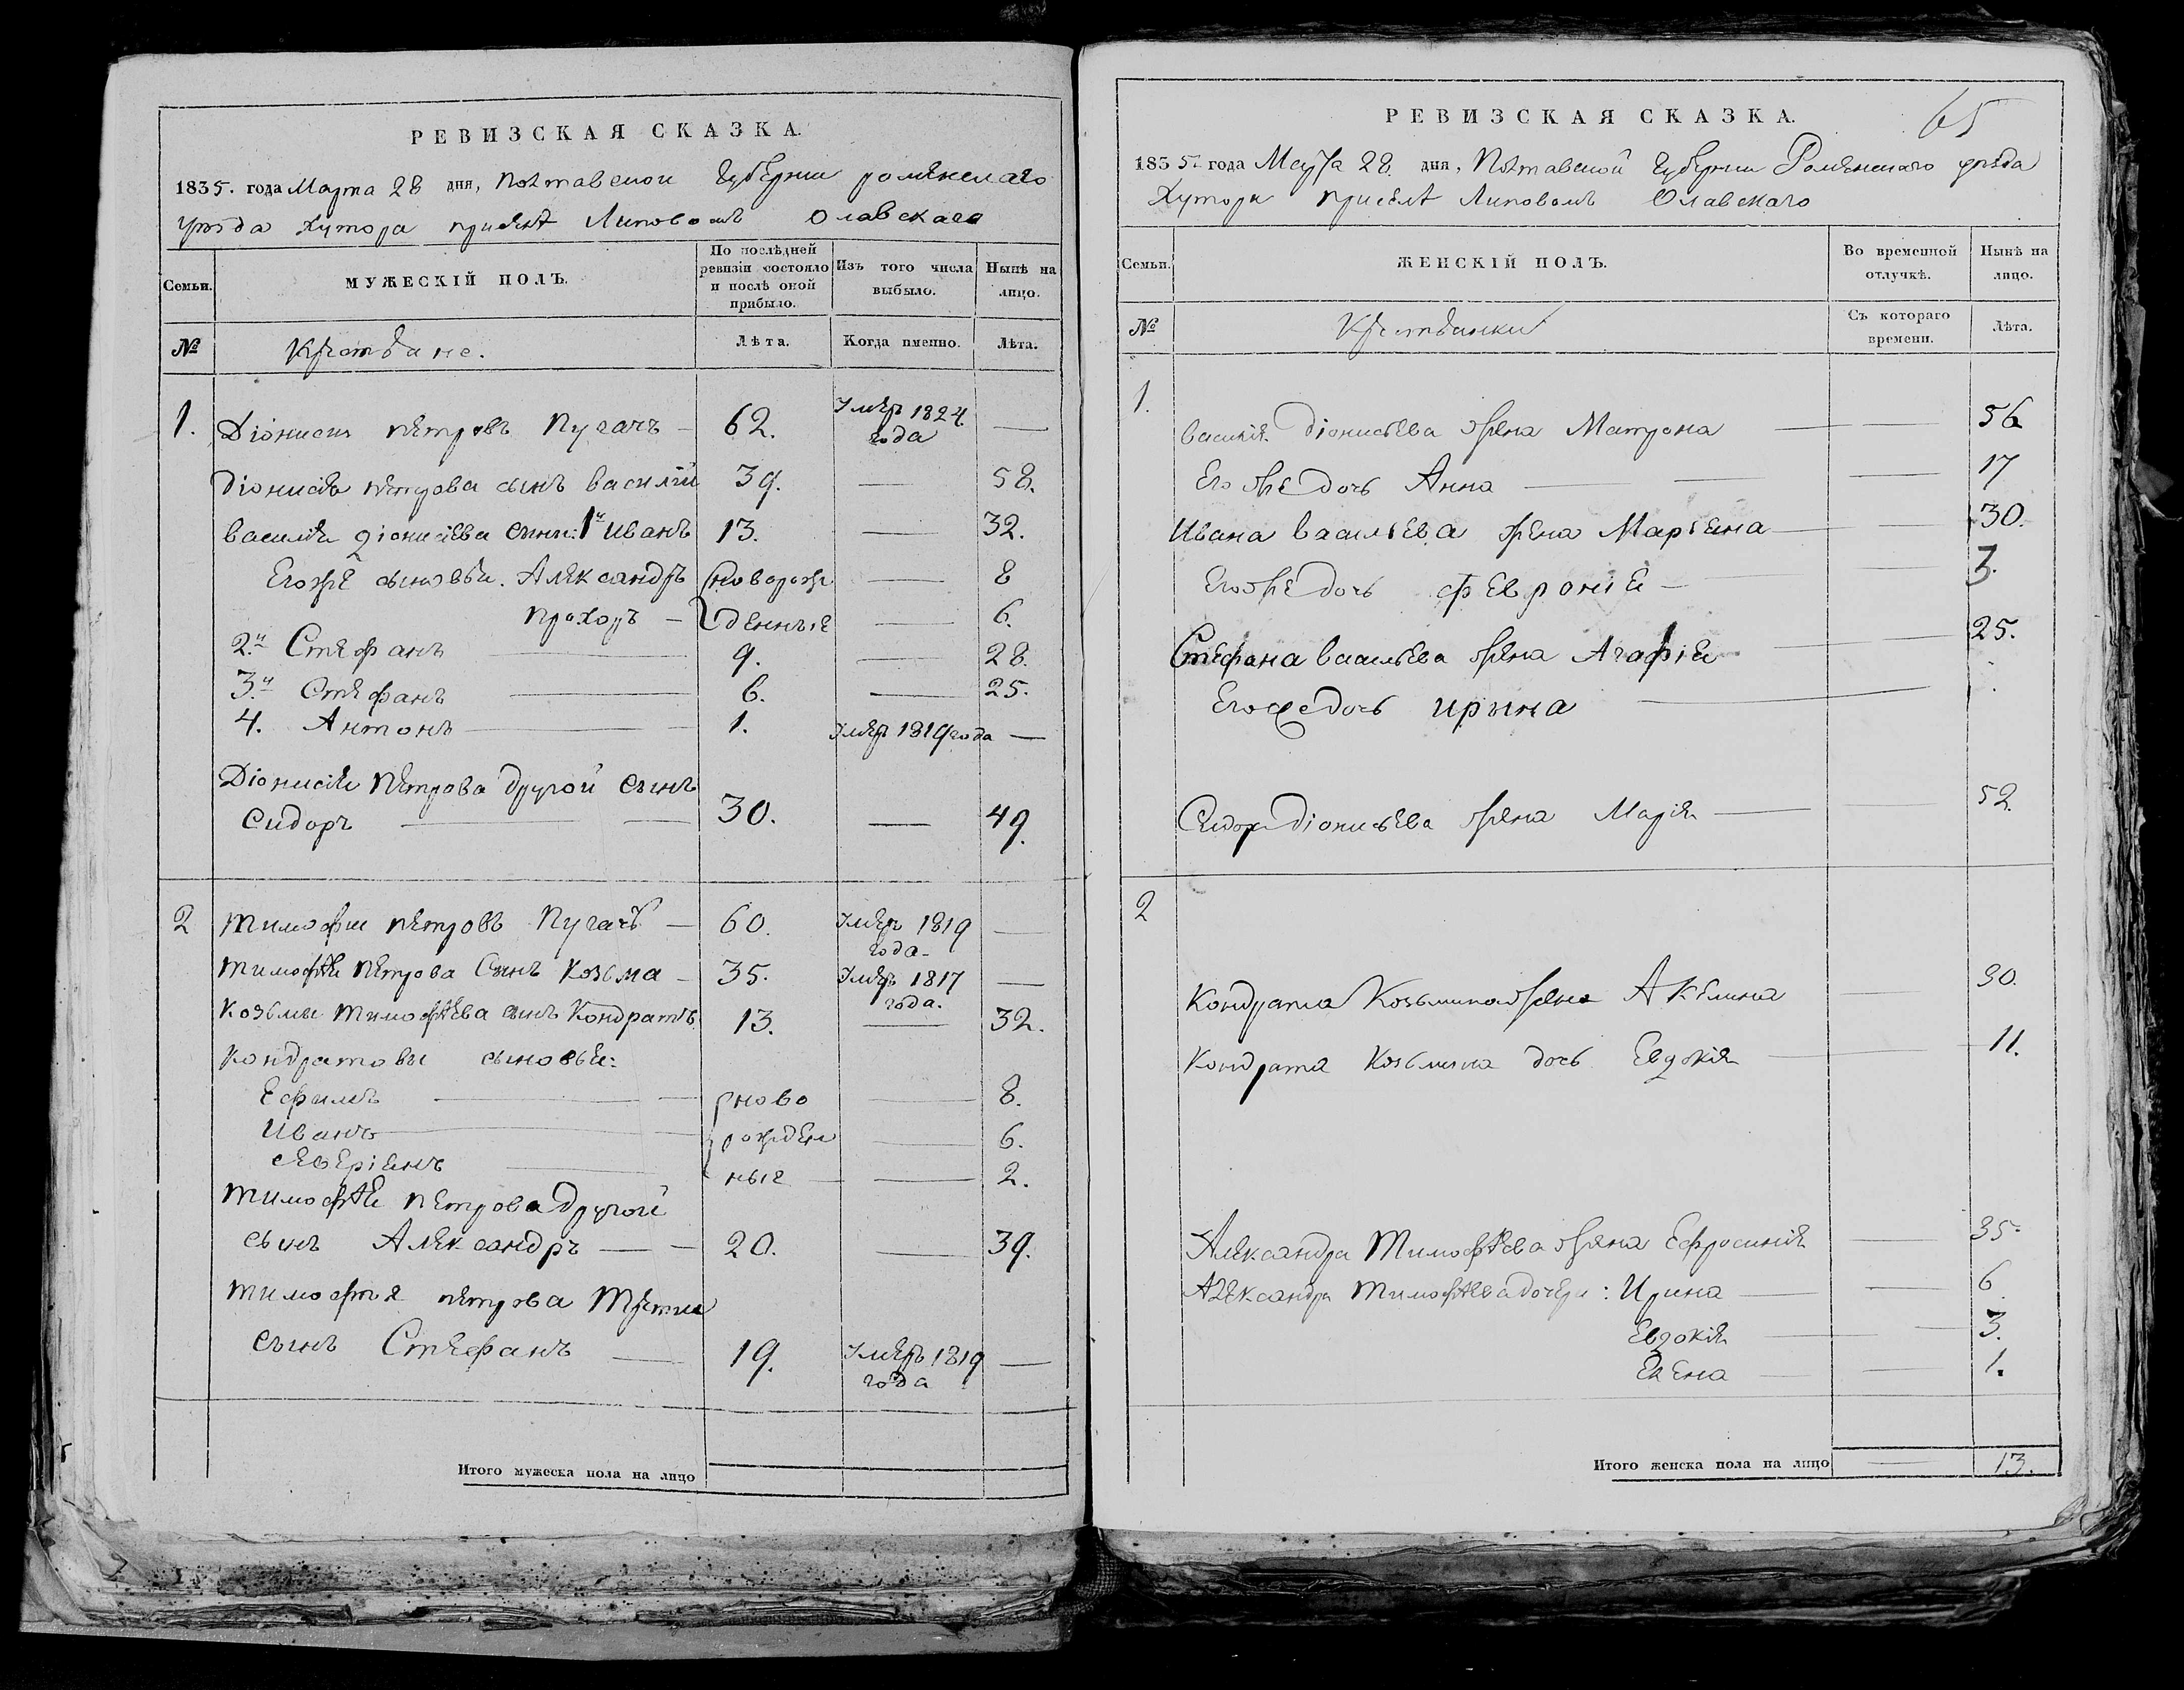 РЕВИЗСКАЯ СКАЗКА.
1835. года Марта 28 дня, Полтавской Губернии роменскаго
уезда Хутора приселѣ Липовомъ Олавскаго
Семьи.
МУЖЕСКІЙ ПОЛЪ.
По послѣдней ревизіи состояло и послѣ оной прибыло.
Изъ того числа выбыло.
Нынѣ на лицо.
№
Крестьяне.
Лѣта.
Когда именно.
Лѣта.
1. Діонисий петровъ Пугачъ — 62. Умеръ 1824 года —
Діонисія петрова сынъ василій 39. — 58.
василія діонисіева сыны: 1й иванъ 13. — 32.
Егоже сыновья. Александръ новорож — 8
прохоръ — денные — 6.
2й Стефанъ — 9. — 28.
3й Стефанъ — 6. — 25.
4. Антонъ — 1. Умеръ 1819 года —
Діонисія Петрова другой сынъ
Сидоръ — 30. — 49.
2 Тимофеи петровъ Пугачъ — 60. Умеръ 1819 года —
Тимофѣя Петрова Сынъ Козьма — 35. Умеръ 1817 года. —
Козьмы Тимофѣева сынъ Кондратъ 13. — 32.
Кондратовы сыновья:
Ефимъ — ново — 8.
Иванъ — рожден — 6.
Северіянъ — ные — 2.
Тимофѣя петрова другой
сынъ Александръ — 20. — 39.
Тимофея петрова третии
сынъ Стефанъ — 19. Умеръ 1819 года —
Итого мужеска пола на лицо
65
РЕВИЗСКАЯ СКАЗКА.
1835 года Марта 28. дня, Полтавской Губернии Роменскаго уезда
Хутора приселѣ Липовомъ Олавскаго
Семьи.
ЖЕНСКІЙ ПОЛЪ.
Во временной отлучкѣ.
Нынѣ на лицо.
№
Крестьянки
Съ котораго времени.
Лѣта.
1.
василія діонисьева жена Матрона — 56
Его же дочь Анна — 17
Ивана васильева жена Маріена — 30.
Егоже дочь феврония — 3.
Стефана васильева жена Агафія — 25.
Егоже дочь ирына —
Сидора діонисьева жена Марія — 52.
2
Кондрата Козьмина жена Акелина — 30.
Кондрата Козьмина дочь Евдокія — 11.
Александра Тимофѣева жена Ефросинія — 35.
Александра Тимофѣева дочери: Ирина — 6
Евдокія — 3.
Елена — 1.
Итого женска пола на лицо — 13.